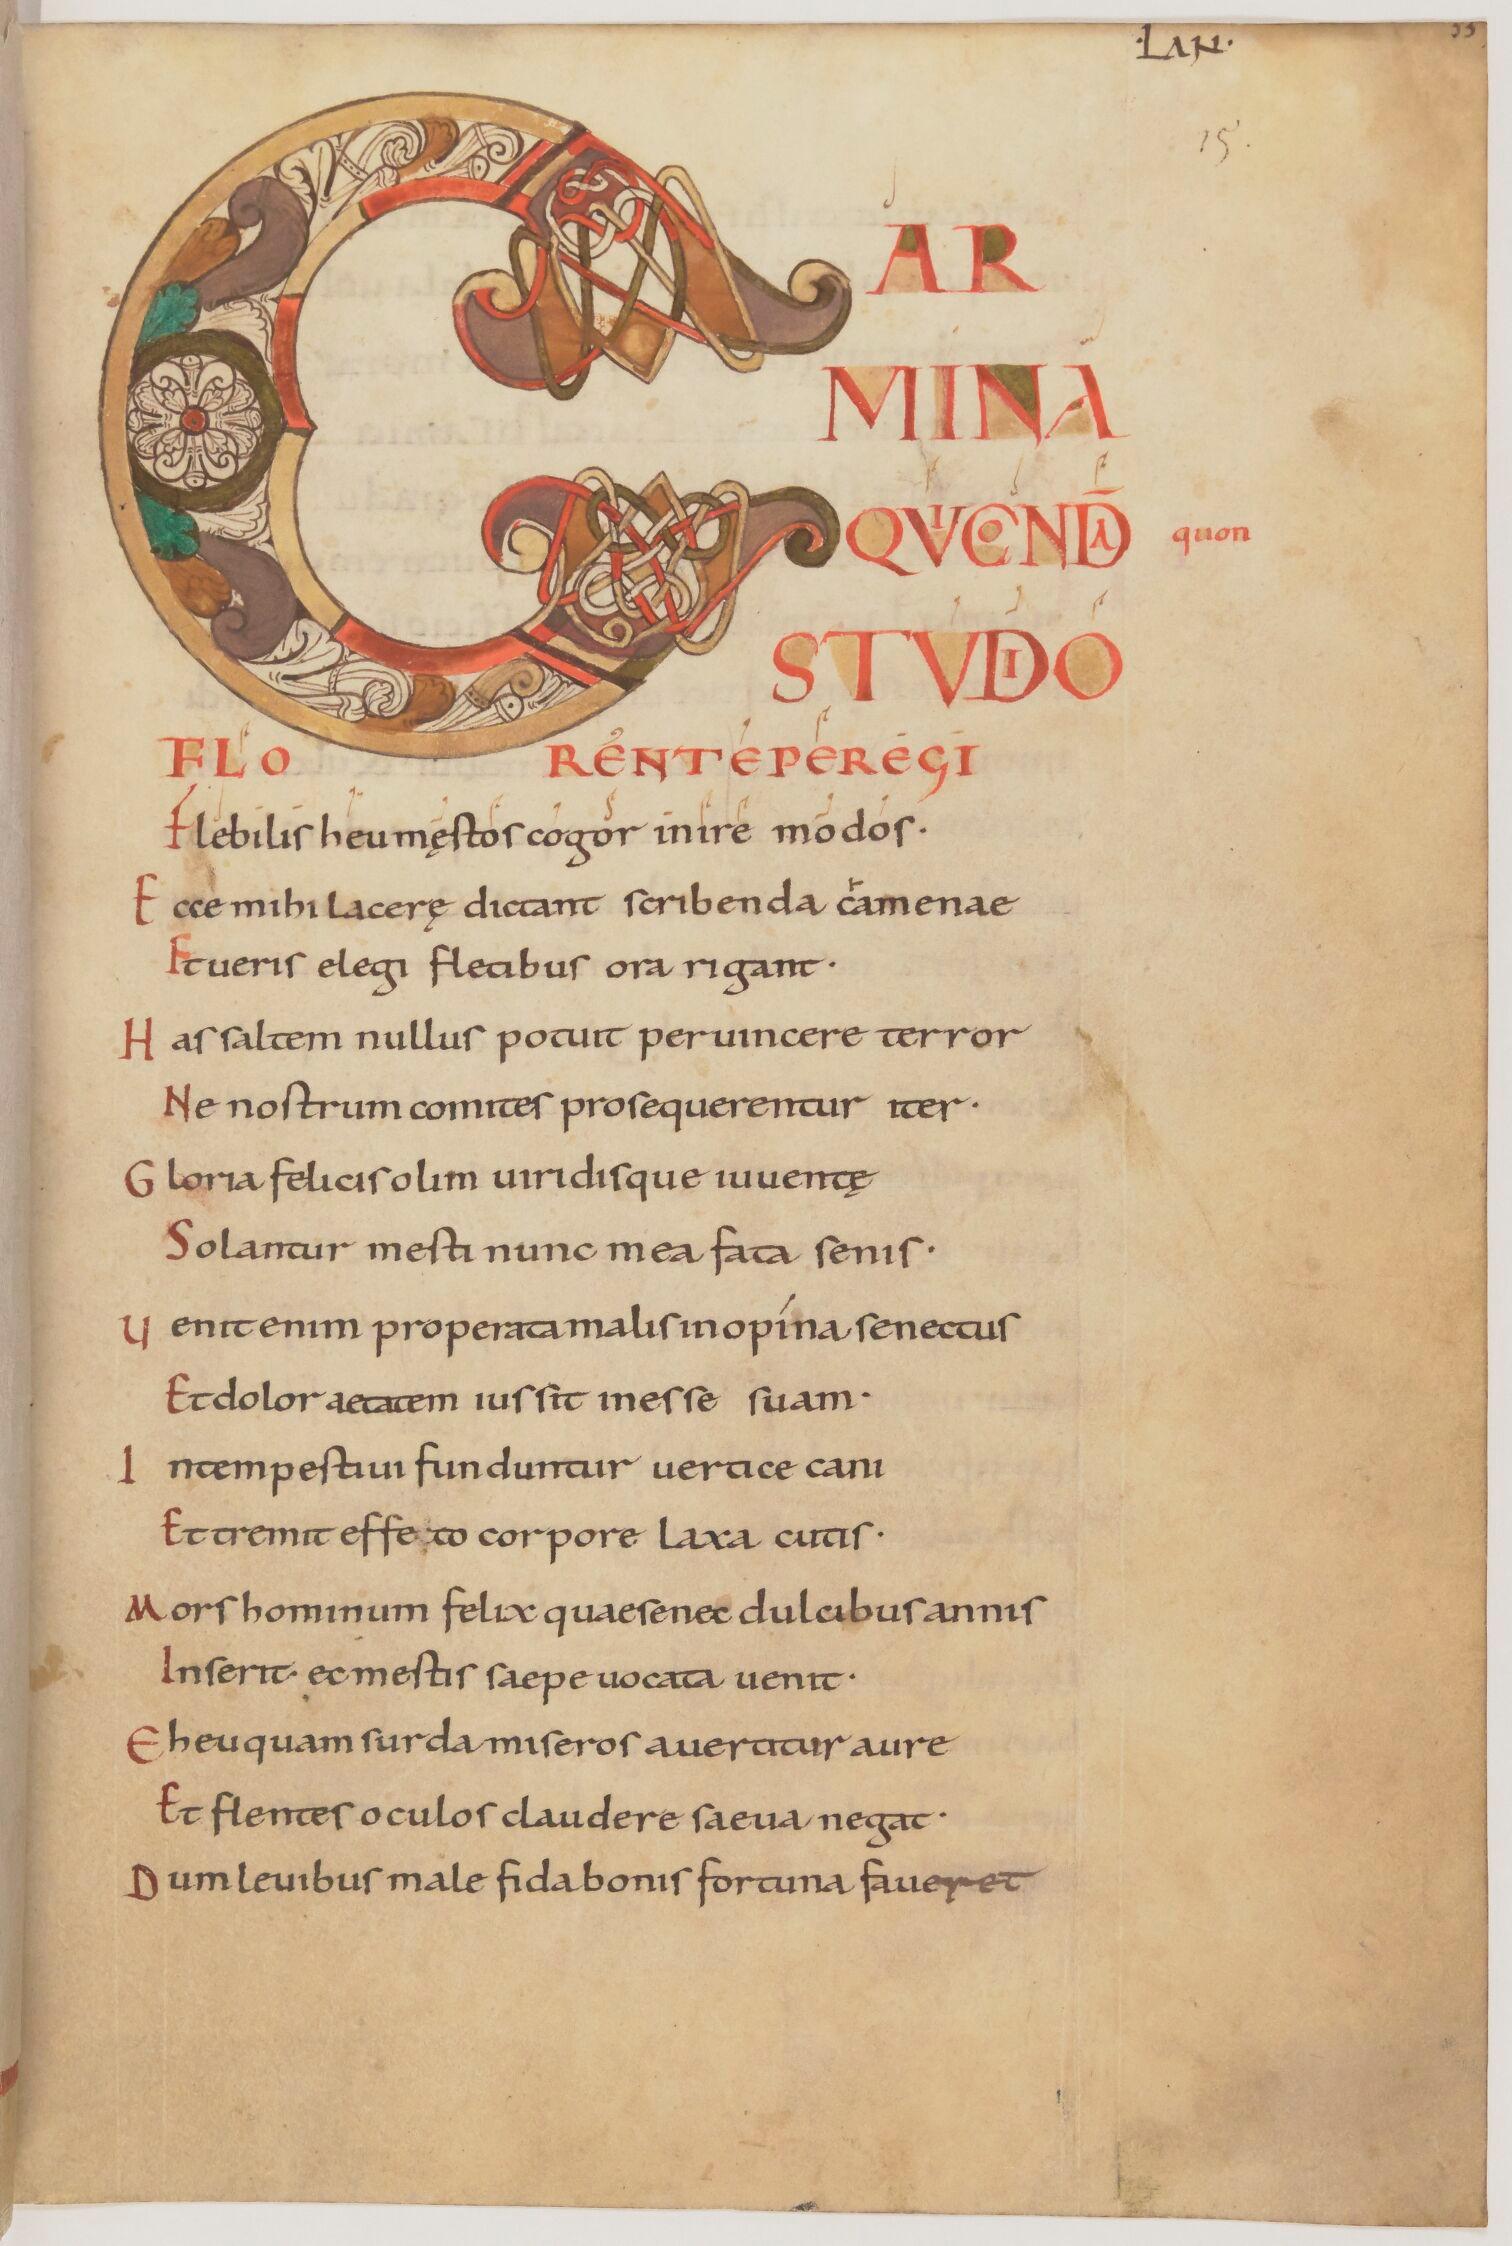 ·LAN·
33
15.
CAR
MINA
QVICONDĀ quon
STVDIO
FLORENTE PEREGI
Flebilis heu męstos cogor inire modos·
Ecce mihi lacerę dictant scribenda camenae
Et ueris elegi fletibus ora rigant·
Has saltem nullus potuit peruincere terror
Ne nostrum comites prosequerentur iter·
Gloria felicis olim uiridisque iuuentę
Solantur mesti nunc mea fata senis·
Venit enim properata malis inopína senectus
Et dolor aetatem iussit inesse suam·
Intempestiui funduntur uertice cani
Et tremit effeto corpore laxa cutis·
Mors hominum felix quae se nec dulcibus annis
Inserit· ec mestis saepe uocata uenit·
Eheu quam surda miseros auertitur aure
Et flentes oculos claudere saeua negat·
Dum leuibus male fida bonis fortuna faueret